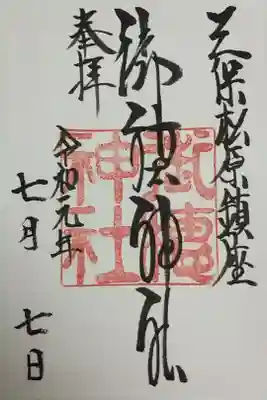 三保松原鎮座
御穂神社
奉拝
令和元年
七月 七日